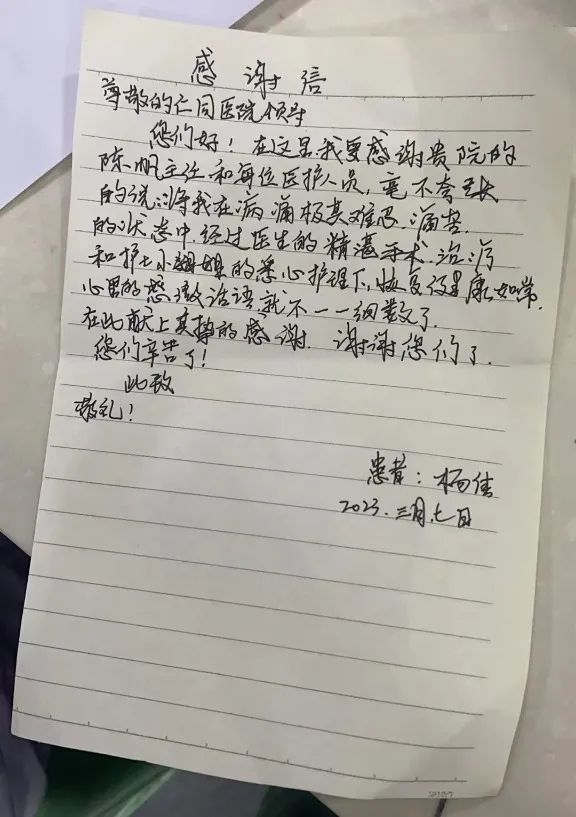 感谢信
尊敬的仁同医院领导
您们好！在这里我要感谢贵院的
陈帆主任和每位医护人员，毫不夸张
的说：将我在病痛极其难忍、痛苦
的状态中经过医生的精湛手术、治疗
和护士小姐姐的悉心护理下，恢复健康如常.
心里的感激话语就不一一细数了.
在此献上真挚的感谢. 谢谢您们了.
您们辛苦了！
此致
敬礼！
患者：杨佳
2023.三月.七日